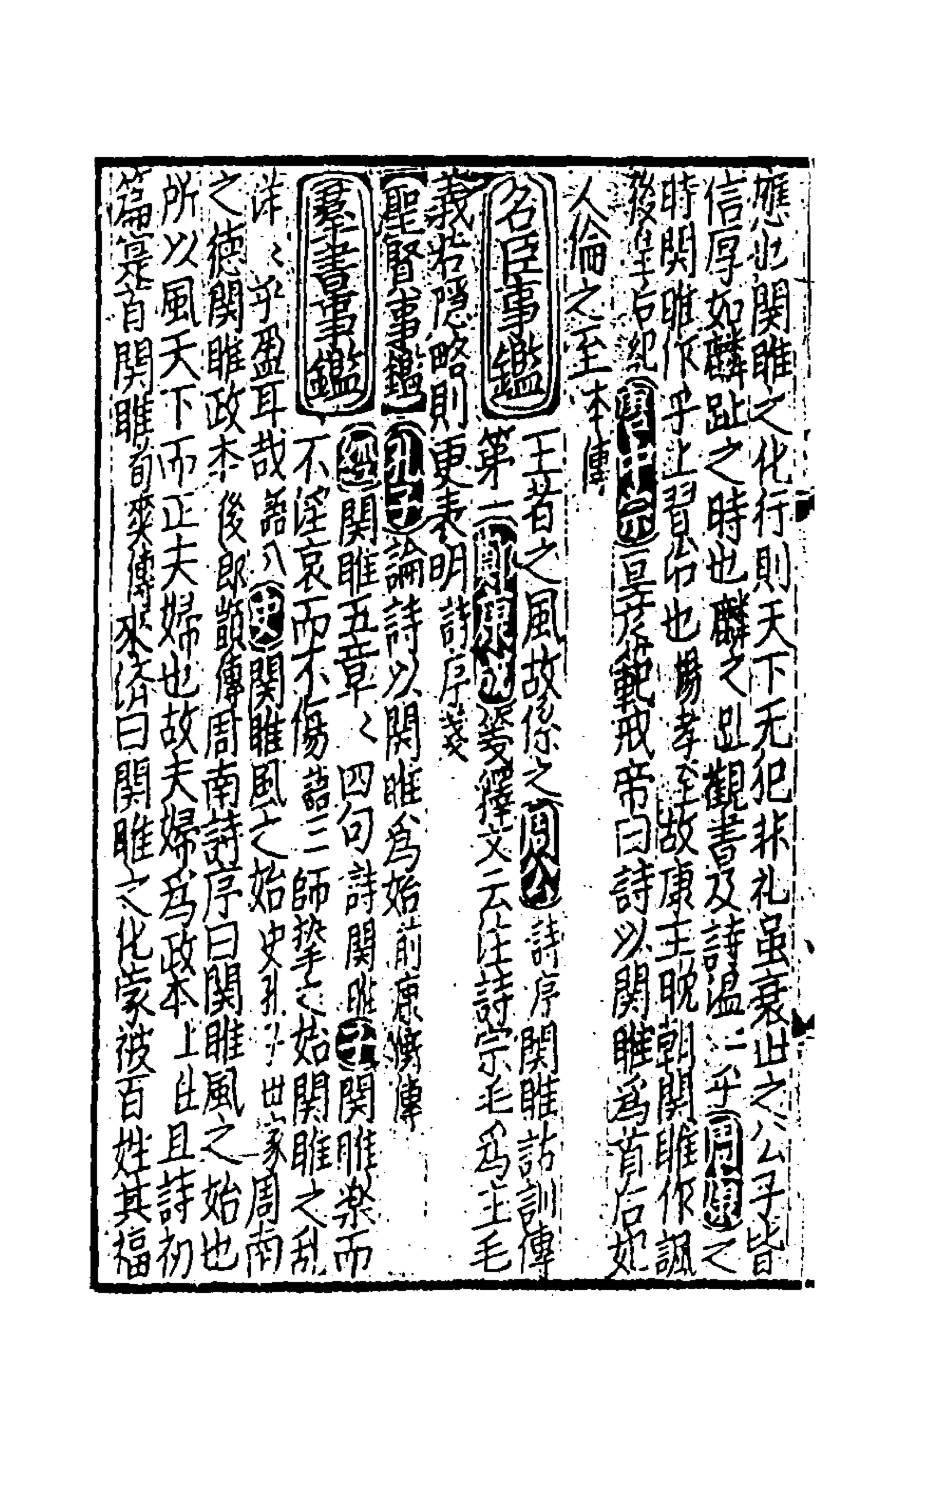 應也関雎之化行則天下无犯非礼虽衰世之公子皆
信厚如麟趾之時也麟之趾觀書及詩溫二乎周康之
時関雎作乎上習治也揚孝至故康王晚朝関雎作諷
後皇后紀唐中宗 範戒帝曰詩以関雎爲首后妃
人倫之至本傳
名臣事鑑 王者之風故係之周公詩序関雎詁訓傳
第一鄭康成箋釋文云注詩宗毛爲主毛
義若隱略則更表明詩序箋
聖賢事鑑孔子論詩以関雎爲始前康衡傳
羣書事鑑經関雎五章〻四句詩関雎子関雎樂而
不淫哀而不傷語三師摯之始関雎之乱
洋〻乎盈耳哉語八史関雎風之始史孔子世家周南
之德関雎政本後郎顗傳周南詩序曰関雎風之始也
所以風天下而正夫婦也故夫婦爲政本上注且詩初
篇寔首関雎荀爽傳來濟曰関雎之化蒙被百姓其福